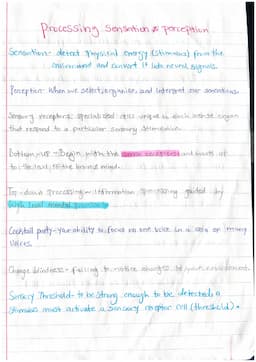 Processing Sensation & perception
Sensation- detect physical energy (stimulus) from the
environment and convert it into neural signals.
Perception- When we select, organise, and interpret our sensations.
Sensory receptors- specialized cells unique to each sense organ
that respond to a particular sensory stimulation.
Bottom-up - Begin with the sense receptors and works up
to the level of the brain & mind.
Top-down processing- information processing guided by
high level mental processes
Cocktail party- Your ability to focus on one voice in a sea of many
voices.
Change blindness- failing to notice changes to your environment.
Sensory Threshold- to be strong enough to be detected, a
stimulus must activate a sensory receptor cell (threshold).